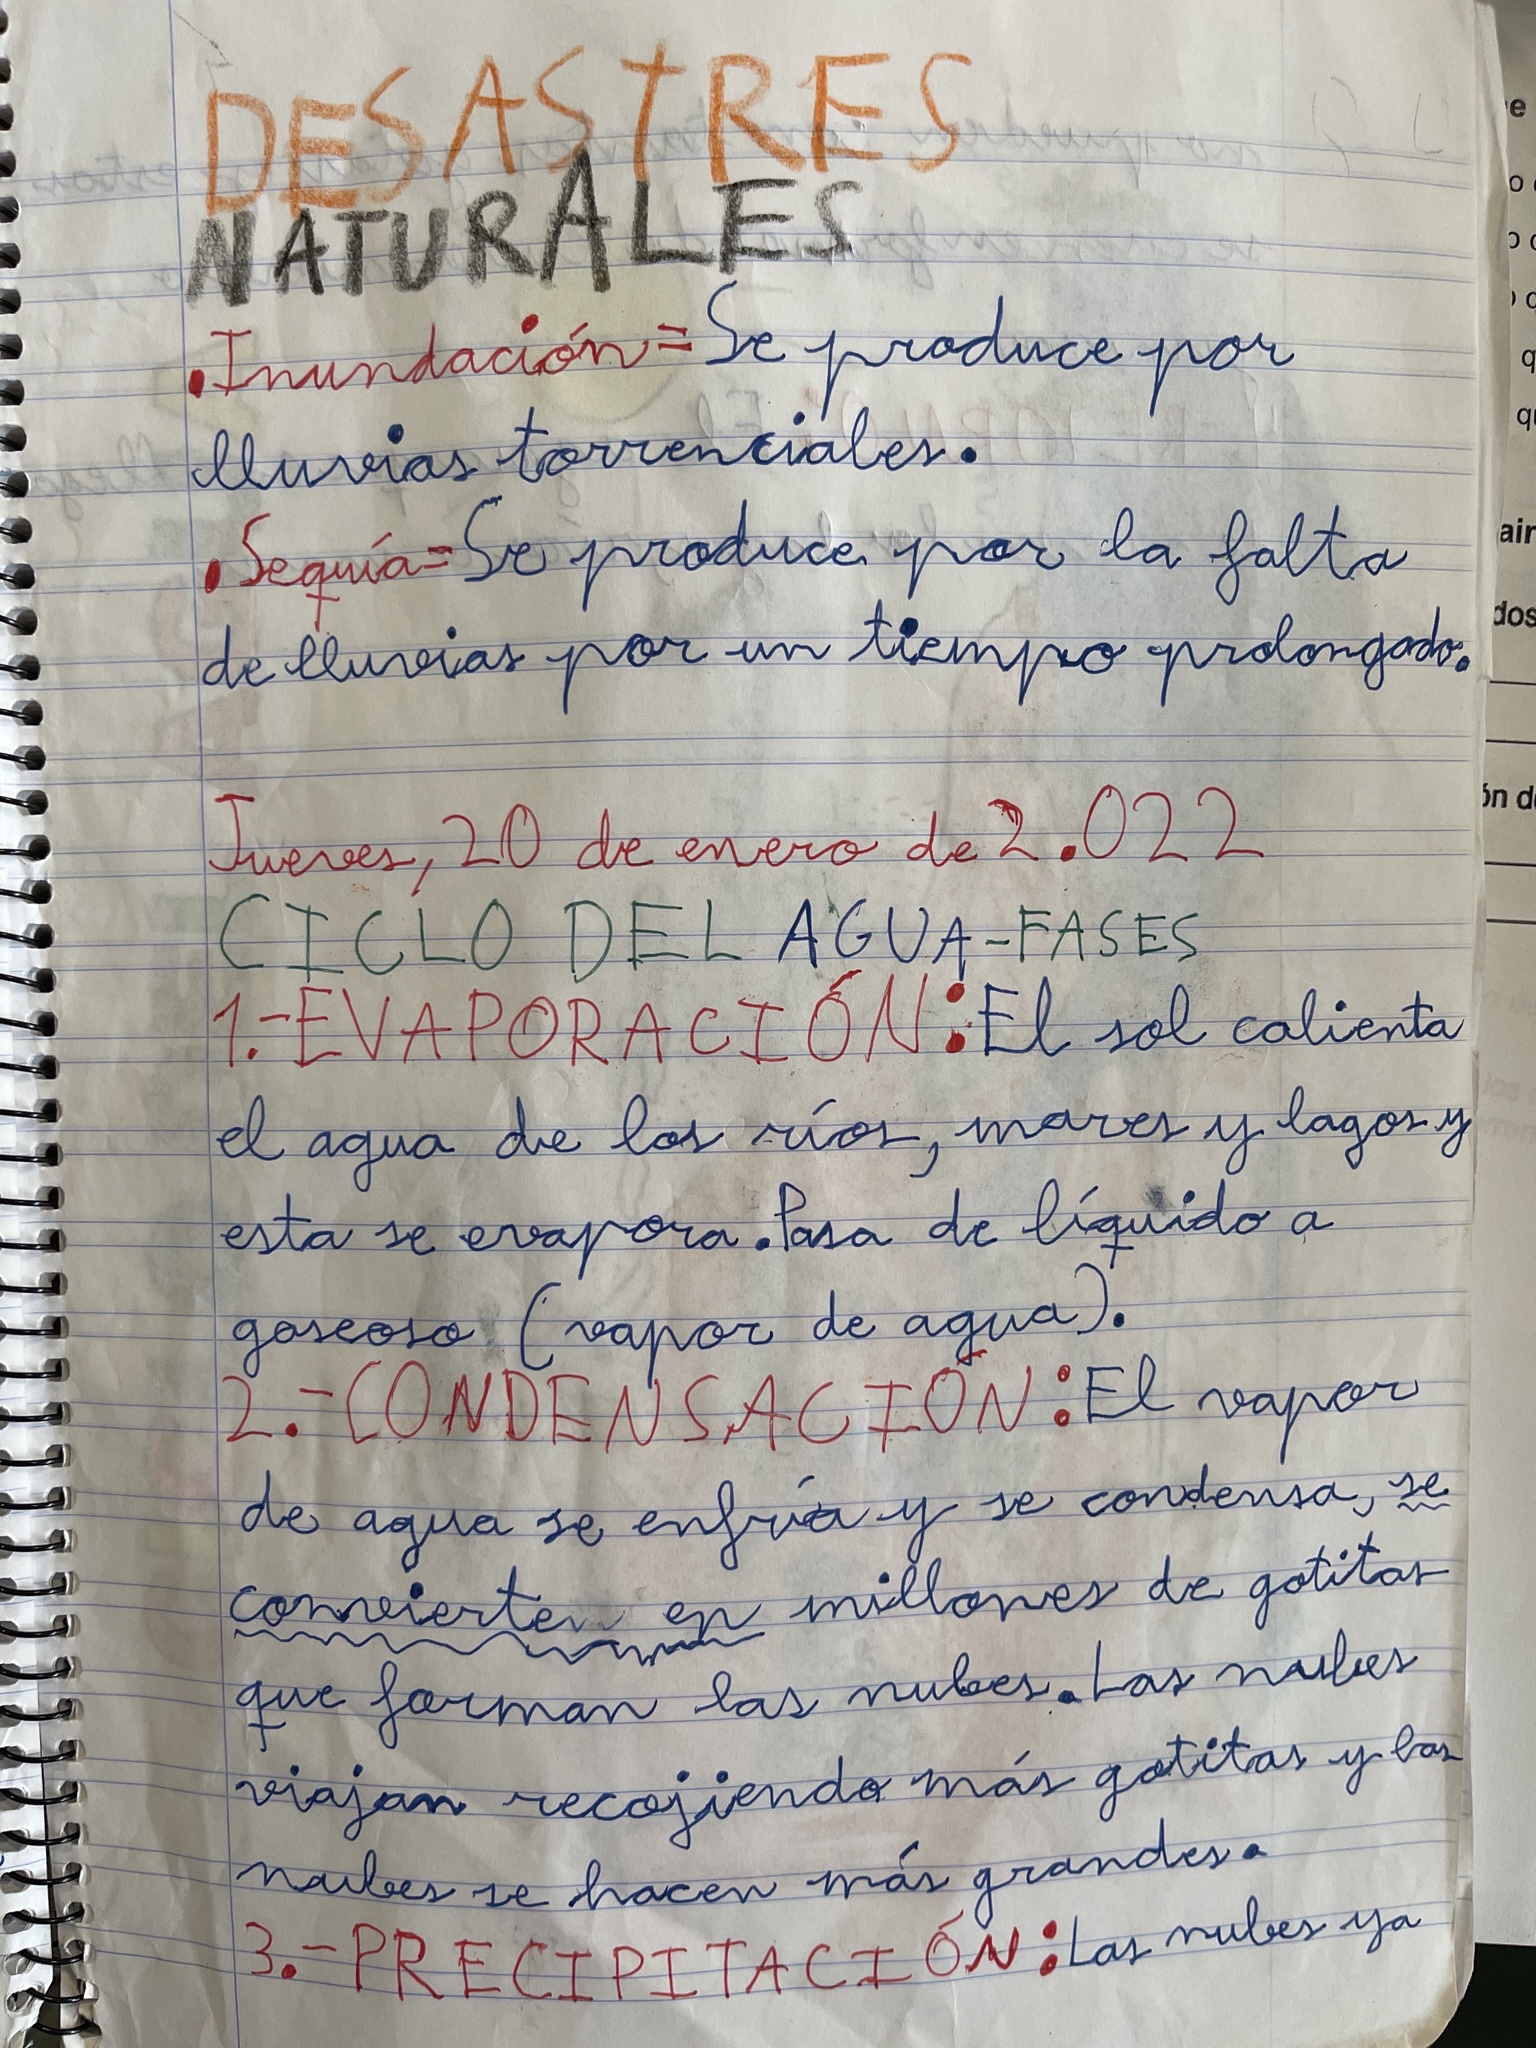 DESASTRES
NATURALES
.Inundación= Se produce por
lluvias torrenciales.
.Sequía= Se produce por la falta
de lluvias por un tiempo prolongado.
Jueves, 20 de enero de 2.022
CICLO DEL AGUA-FASES
1.-EVAPORACIÓN: El sol calienta
el agua de los ríos, mares y lagos y
esta se evapora. Pasa de líquido a
gaseoso (vapor de agua).
2.-CONDENSACIÓN: El vapor
de agua se enfría y se condensa, se
convierten en millones de gotitas
que forman las nubes. Las nubes
viajan recojiendo más gotitas y las
nubes se hacen más grandes.
3.-PRECIPITACIÓN: Las nubes ya